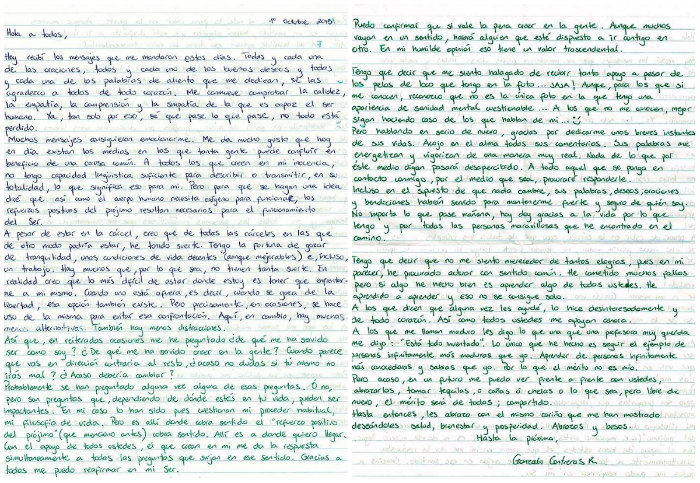 1º Octubre 2015
Hola a todos,
Hoy recibí los mensajes que me mandaron estos días. Todas y cada una
de las oraciones, todos y cada uno de los buenos deseos y todas
y cada una de las palabras de aliento que me dedican, se las
agradezco a todos de todo corazón. Me conmueve comprobar la calidez,
la empatía, la comprensión y la simpatía de la que es capaz el ser
humano. Ya, tan solo por eso, sé que pase lo que pase, no todo está
perdido.
Muchos mensajes consiguieron emocionarme. Me da mucho gusto que hoy
en día existan los medios en los que tanta gente puede confluir en
beneficio de una causa común. A todos los que creen en mi inocencia,
no tengo capacidad lingüística suficiente para describir o transmitir, en su
totalidad, lo que significa eso para mi. Pero para que se hagan una idea
diré que así como el cuerpo humano necesita oxígeno para funcionar, los
refuerzos positivos del prójimo resultan necesarios para el funcionamiento
del Ser.
A pesar de estar en la cárcel, creo que de todas las cárceles en las que
de otro modo podría estar, he tenido suerte. Tengo la fortuna de gozar
de tranquilidad, unas condiciones de vida decentes (aunque mejorables) e, incluso,
un trabajo. Hay muchos que, por lo que sea, no tienen tanta suerte. En
realidad creo que lo más difícil de estar donde estoy es tener que enfrentar-
me a mi mismo. Cuando uno está afuera, es decir, cuando se goza de la
libertad, esa opción también existe. Pero precisamente, en ocasiones, se hace
uso de la misma para evitar esa confrontación. Aquí, en cambio, hay muchas
menos alternativas. También hay menos distracciones.
Así que, en reiteradas ocasiones me he preguntado ¿de qué me ha servido
ser como soy? ¿De qué me ha servido creer en la gente? Cuando parece
que vas en dirección contraria al resto, ¿acaso no dudas si tú mismo no
irás mal? ¿Acaso debería cambiar?
Probablemente se han preguntado alguna vez alguna de esas preguntas. O no,
pero son preguntas que, dependiendo de dónde estés en tu vida, pueden ser
importantes. En mi caso lo han sido pues cuestionan mi proceder habitual,
mi filosofía de vida. Pero es allí donde cobra sentido el "refuerzo positivo
del prójimo" (que menciono antes) cobra sentido. Allí es a donde quiero llegar.
Con el apoyo de todos ustedes, el que crean en mi me da la respuesta
simultáneamente a todas las preguntas que surjan en ese sentido. Gracias a
todos me puedo reafirmar en mi Ser.
Puedo confirmar que si vale la pena creer en la gente. Aunque muchos
vayan en un sentido, habrá alguien que esté dispuesto a ir contigo en
otro. En mi humilde opinión eso tiene un valor trascendental.
Tengo que decir que me siento halagado de recibir tanto apoyo a pesar de
los pelos de loco que tengo en la foto... JAJA! Aunque, para los que si
me conocen, reconozco que no es la única foto en la que tengo una
apariencia de sanidad mental cuestionable... A los que no me conocen, mejor
sigan haciendo caso de los que hablan de mi...
Pero hablando en serio de nuevo, gracias por dedicarme unos breves instantes
de sus vidas. Acojo en el alma todos sus comentarios. Sus palabras me
energetizan y vigorizan de una manera muy real. Nada de lo que por
este medio digan pasará desapercibido. A todo aquel que se ponga en
contacto conmigo, por el medio que sea, procuraré responderle.
Incluso en el supuesto de que nada cambie, sus palabras, deseos, oraciones
y bendiciones habrán servido para mantenerme fuerte y seguro de quién soy.
No importa lo que pase mañana, hoy doy gracias a la vida por lo que
tengo y por todas las personas maravillosas que he encontrado en el
camino.
Tengo que decir que no me siento merecedor de tantos elogios, pues en mi
parecer, he procurado actuar con sentido común. He cometido muchos fallos
pero si algo he hecho bien es aprender algo de todos ustedes. He
aprendido a aprender y eso no se consigue solo.
A los que dicen que alguna vez les ayudé, lo hice desinteresadamente y
de todo corazón. Así como todos ustedes me apoyan ahora.
A los que me llaman maduro les digo lo que una que una profesora muy querida,
me dijo: "Está todo inventado". Lo único que he hecho es seguir el ejemplo de
personas infinitamente más maduras que yo. Aprender de personas infinitamente
más conocedoras y sabias que yo. Por lo que el mérito no es mío.
Pero acaso, en un futuro me pueda ver frente a frente con ustedes,
abrazarlos, tomar tequilas, o cañas o chelas o lo que sea, pero libre de
nuevo, el mérito será de todos; compartido.
Hasta entonces, les abrazo con el mismo cariño que me han mostrado
deseándoles: salud, bienestar y prosperidad. Abrazos y besos.
Hasta la próxima,
Gonzalo Contreras R.